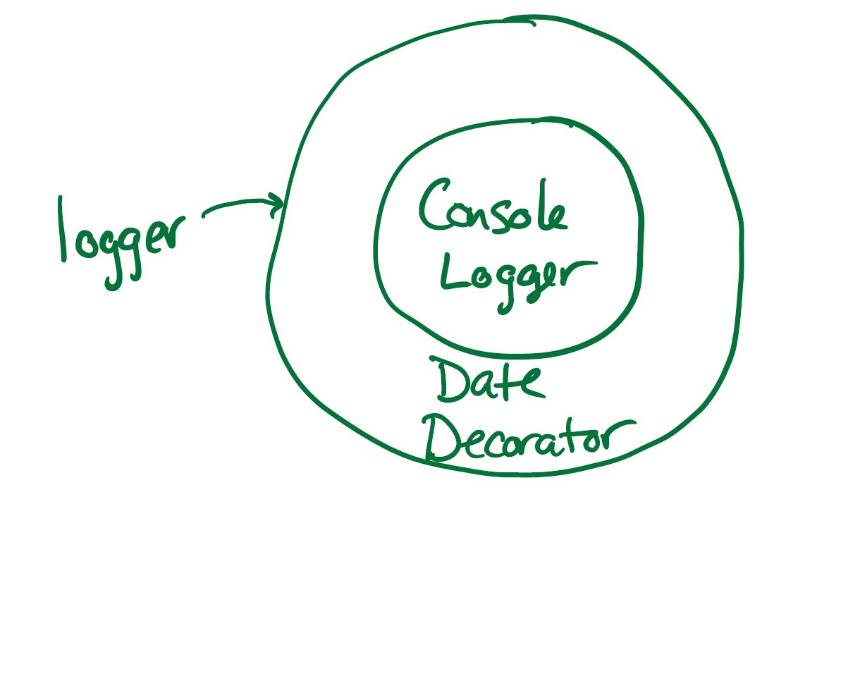 logger
Console
Logger
Date
Decorator